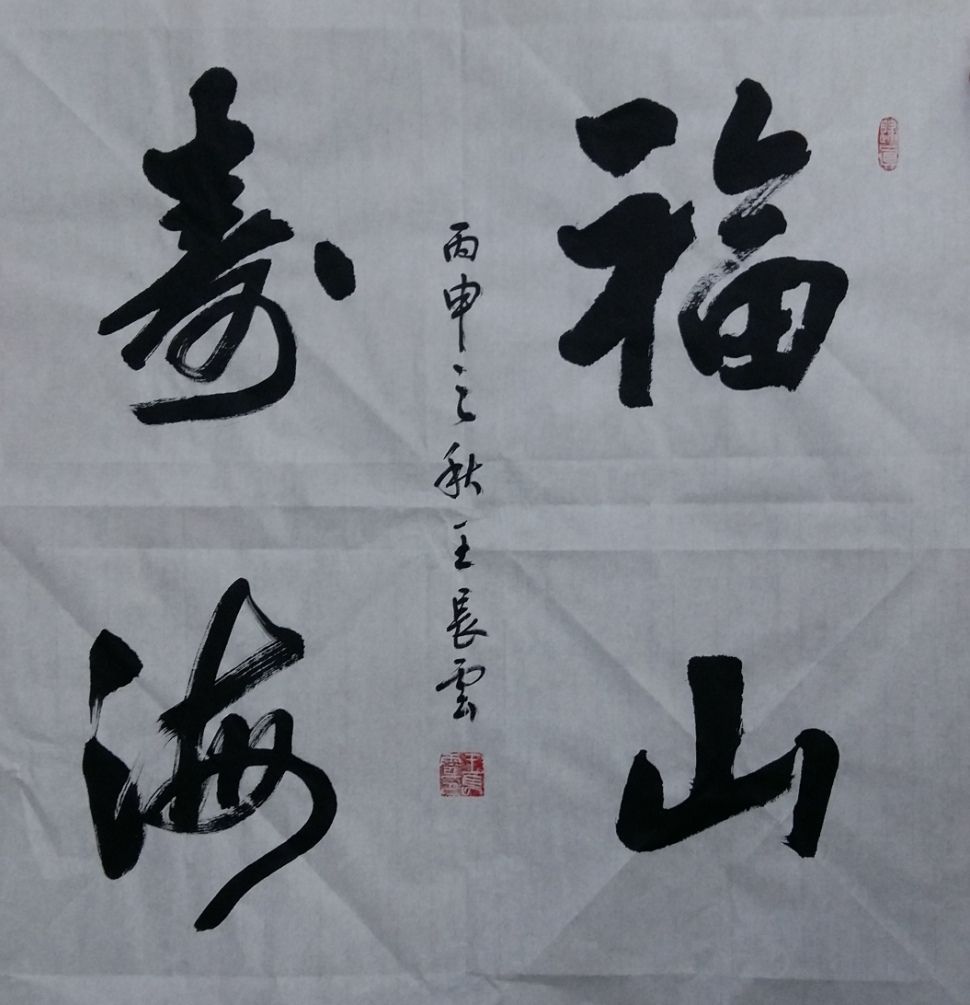 福山
寿海
丙申之秋王長雲